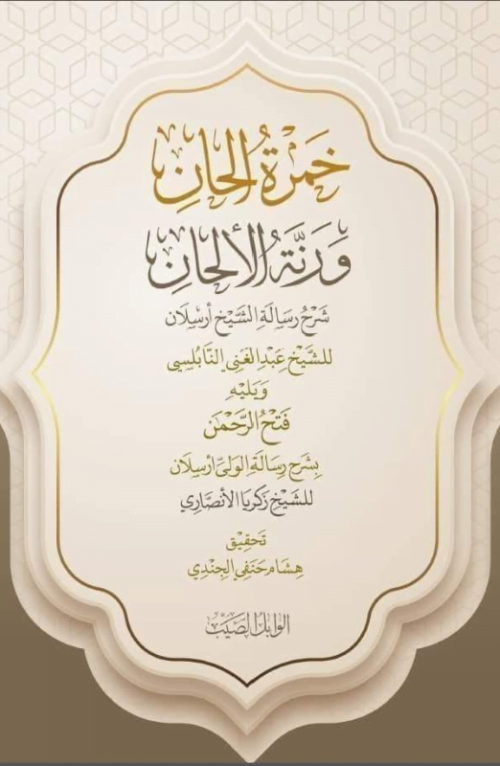 خَمْرَةُ الحَانِ
وَرَنَّةُ الأَلحَانِ
شَرْحُ رِسَالَةِ الشَّيْخِ أَرسلَان
للشَّيْخِ عَبْدِ الغَنِي النَّابُلسِي
وَيَليْهِ
فَتْحُ الرَّحْمٰنِ
بِشَرحِ رِسَالَةِ الوَلِيِّ أَرسلَان
للشَّيْخِ زَكَرِيَا الأَنصَاري
تَحقِيْق
هِشَام حَنَفِي الجِنْدِي
الوَابِل الصَيِّب